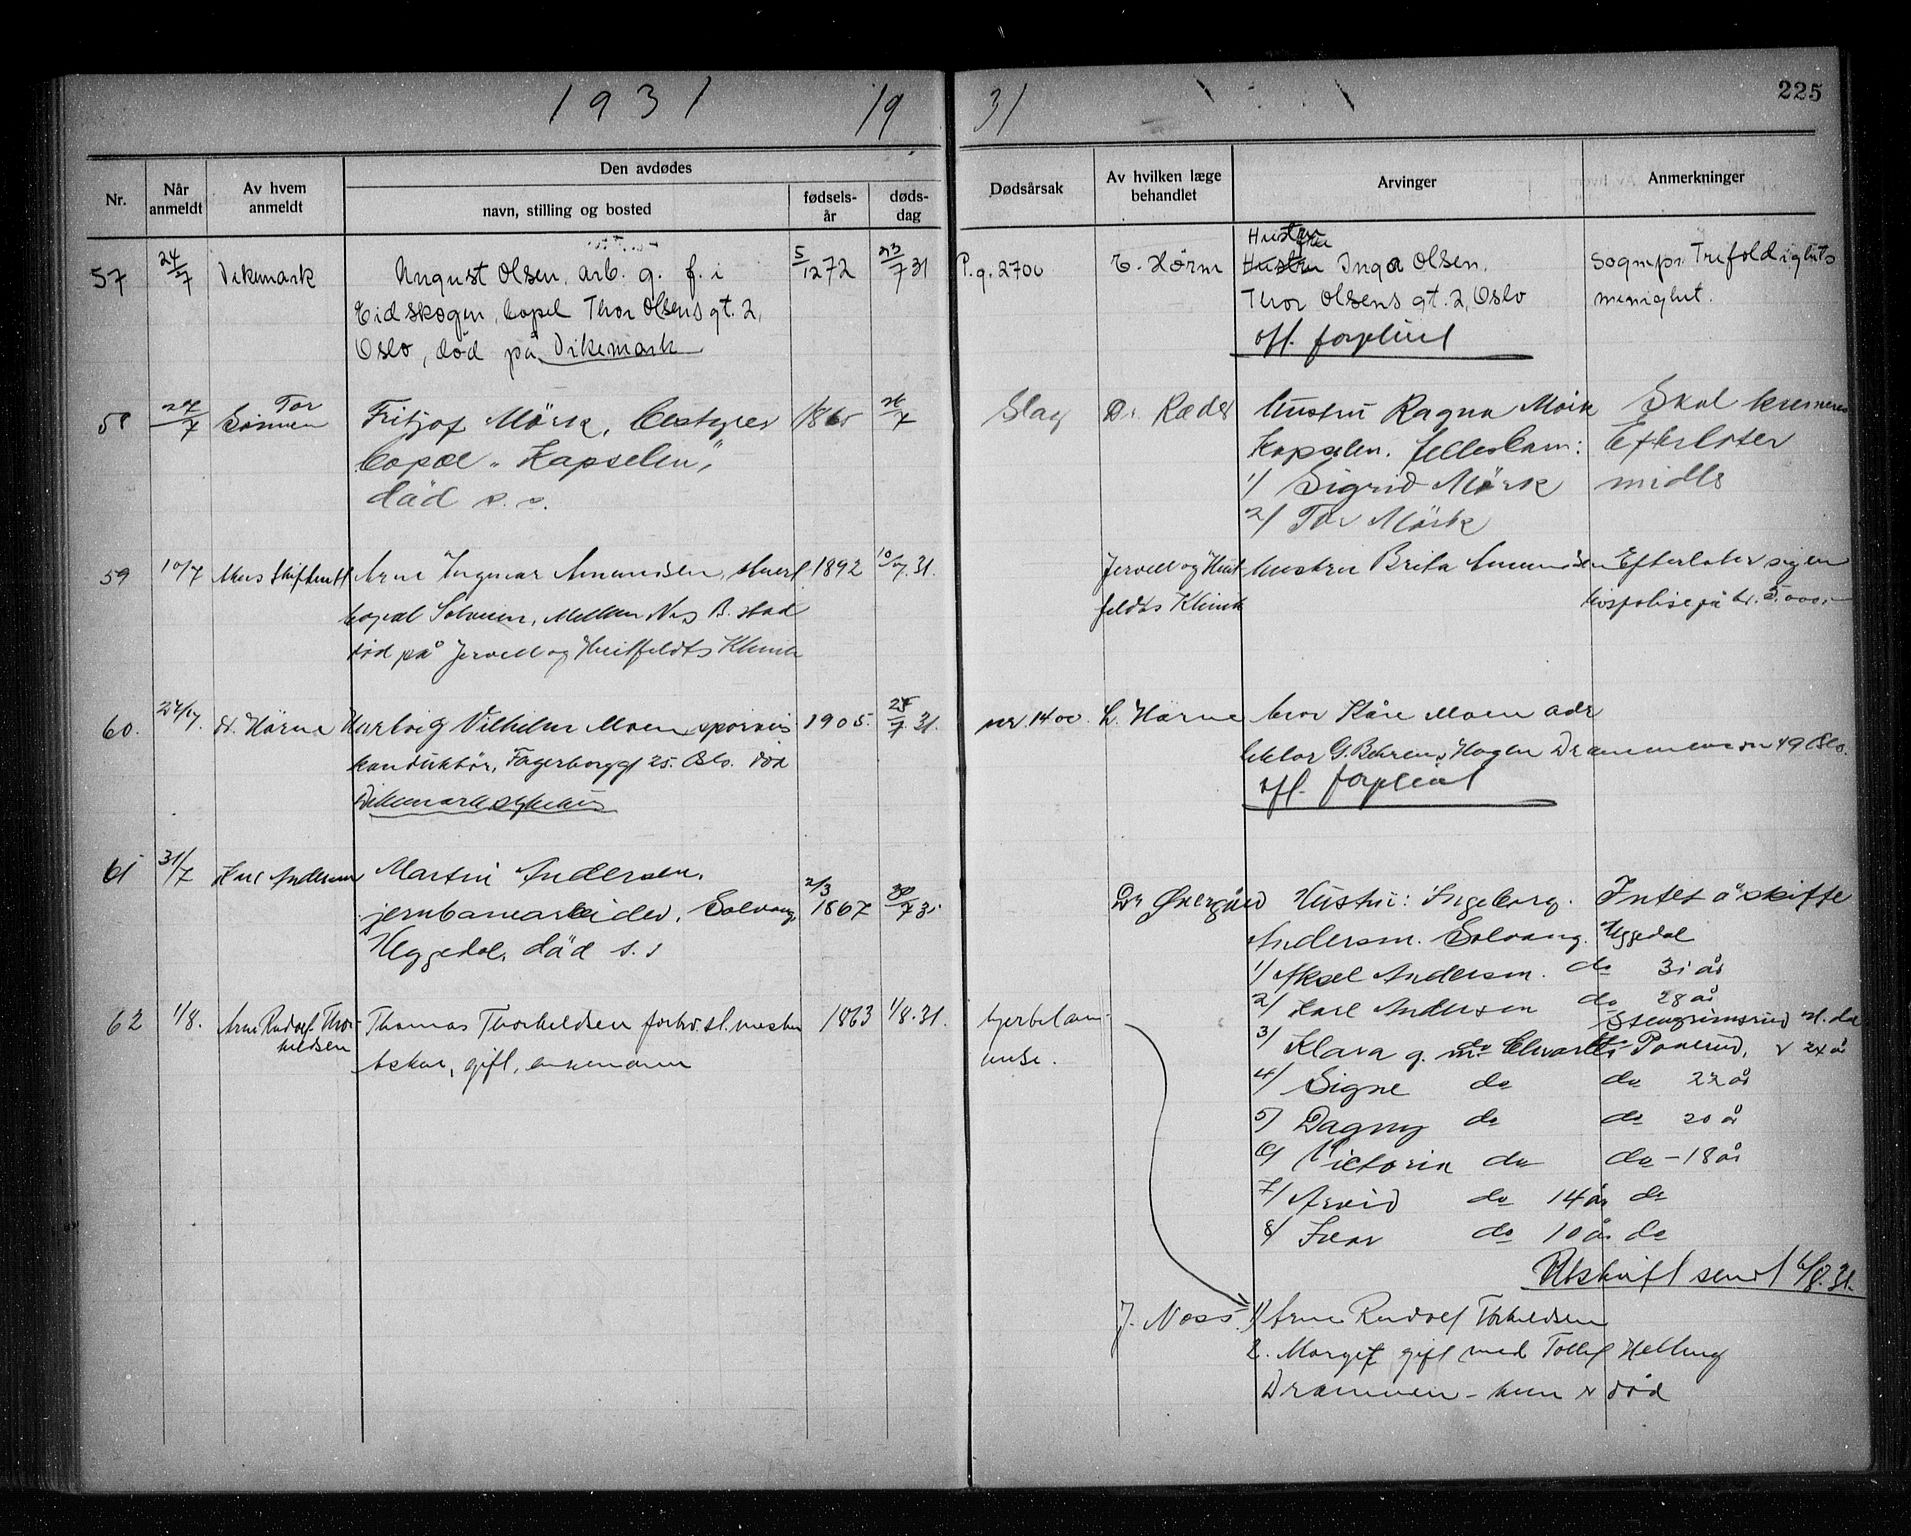 1931
19
31
225
Nr.
Når anmeldt
Av hvem anmeldt
Den avdødes
navn, stilling og bosted
fødsels-år
døds-dag
Dødsårsak
Av hvilken læge behandlet
Arvinger
Anmerkninger
57 24/7 Dikemark August Olsen, arb. g. f. i 5/12 72 23/7 31 P.g. 2700
Eidskogen, bopel Thor Olsens gt. 2,
Oslo, död på Dikemark
Hustru Inga Olsen,
Thor Olsens gt. 2, Oslo
off. forpleiet
Sognepr. Trefoldighets
menighet.
58 27/7 Sønnen Tor Fritjof Mörk, 1865 26/7 Slag Dr Ræder
bopæl "Kapselen",
död s. s.
Hustru Ragna Mörk
Kapselen. fellesbarn:
1/ Sigrid Mörk
2/ Tor Mörk
Skal kremeres
Efterlater
midler
59 10/7 Akers skifterett Arne Ingmar Amundsen, 1892 10/7.31.
bopæl Solveien, Mellem Nes B. stad
död på Jervell og Huitfeldts Klinik
Jervell og Huit
feldts Klinik
hustru Brita Amundsen
Efterlater sig en
livspolise på kr. 5.000.-
60. 27/7. H. Hörne Hartvig Vilhelm Moen sporveis 1905. 27/7.31. nr. 1400.
konduktör, Fagerborggt 25. Oslo. död
Dikemark sykehus
bror Kåre Moen adr
G. Behrens Hagen Drammensvn 49 Oslo.
off. forpleiet
61 31/7 Karl Andersen Martin Andersen, 2/3 1867 30/7 31
jernbanearbeider, Solvang,
Heggedal, död s. s
Dr Övergård
Hustru: Ingeborg
Andersen. Solvang. Heggedal
Intet å skifte
1/ Aksel Andersen. do 31 år
2/ Karl Andersen do 28 år
3/ Klara g. m. 24 år
4/ Signe do do 22 år
5/ Dagny do do 20 år
6/ Victoria do do - 18 år
7/ Arvid do 14 år do
8/ Ivar do 10 år do
Utskrift sendt 6/8.31.
62 1/8. Arne Rudolf Thorkildsen Thomas Thorkildsen forhv. st. mester 1863 1/8.31.
Asker, gift, enkemann
J. Ness. 1) Arne Rudolf Thorkildsen
2. Margit gift med Tollef Helling
Drammen - hun er död